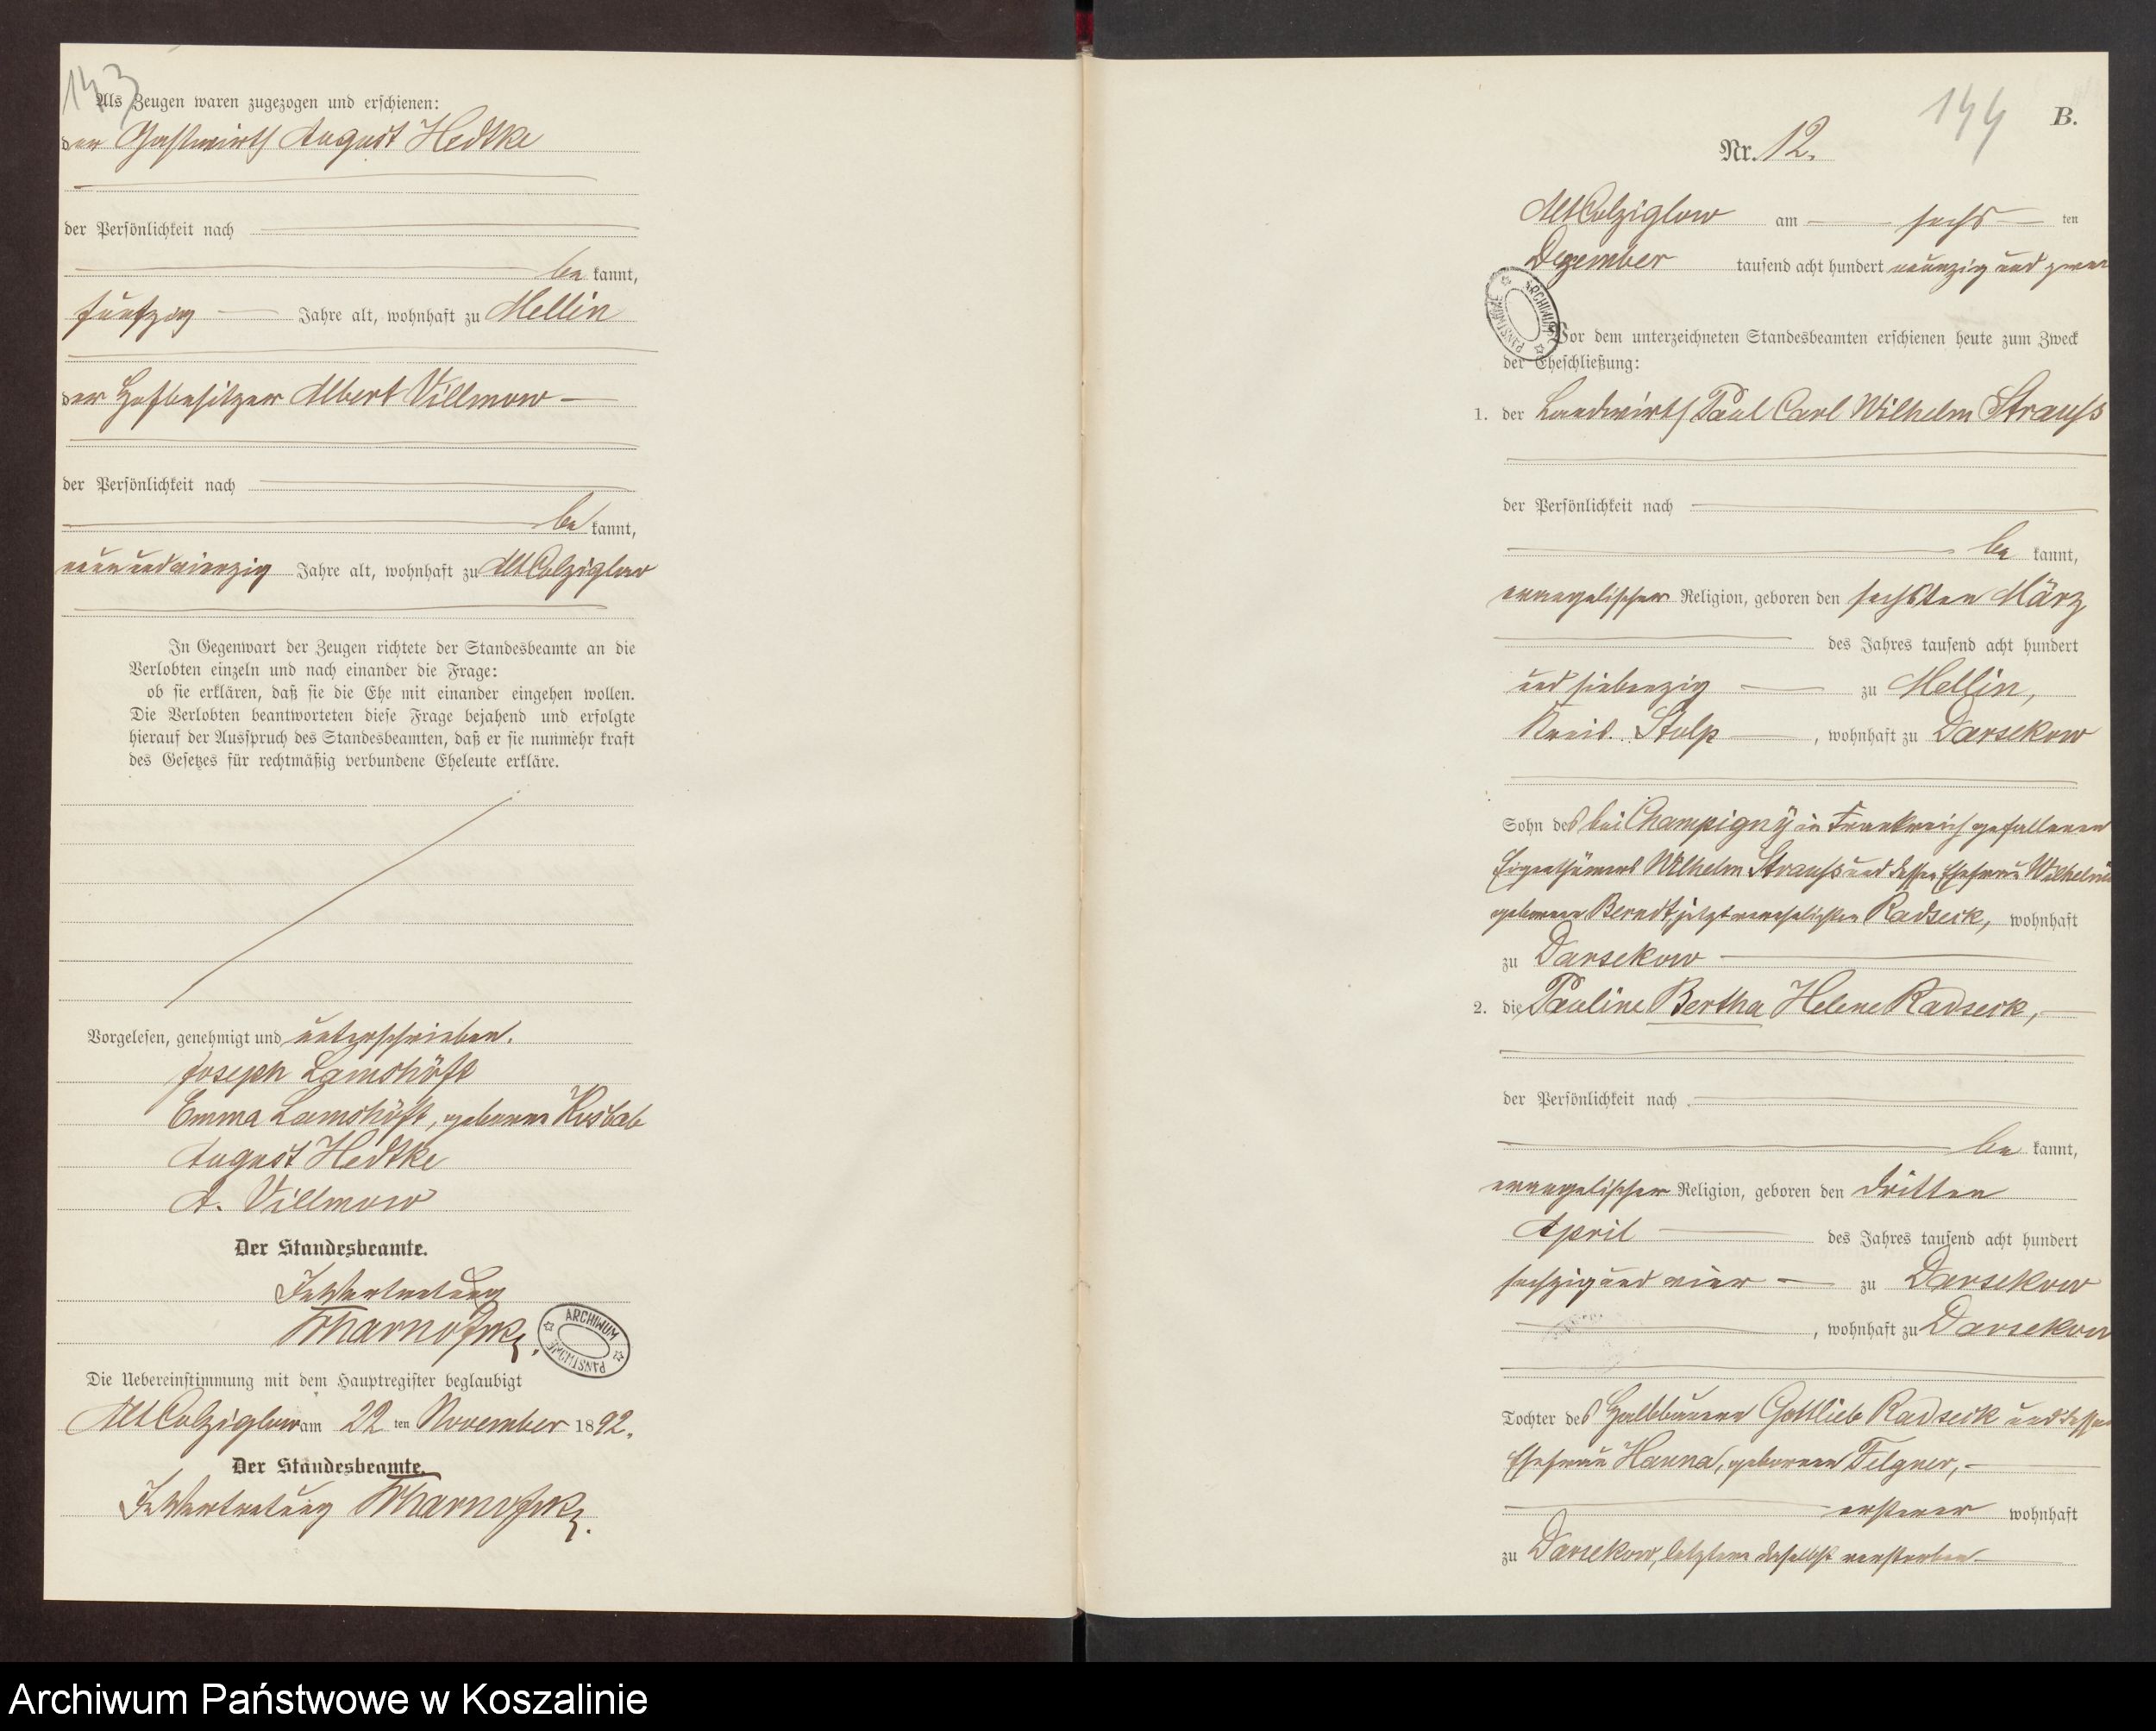 143
Als Zeugen waren zugezogen und erschienen:
der Gastwirth August Hedtke
der Persönlichkeit nach
be kannt,
fünfzig Jahre alt, wohnhaft zu Mellin
der Hofbesitzer Albert Villmow
der Persönlichkeit nach
be kannt,
neunundvierzig Jahre alt, wohnhaft zu Alt Colziglow
In Gegenwart der Zeugen richtete der Standesbeamte an die
Verlobten einzeln und nach einander die Frage:
ob sie erklären, daß sie die Ehe mit einander eingehen wollen.
Die Verlobten beantworteten diese Frage bejahend und erfolgte
hierauf der Ausspruch des Standesbeamten, daß er sie nunmehr kraft
des Gesetzes für rechtmäßig verbundene Eheleute erkläre.
Vorgelesen, genehmigt und unterschrieben.
Joseph Lamshöft
Emma Lamshöft, geborene Kusbab
August Hedtke
A. Villmow
Der Standesbeamte.
In Vertretung
ARCHIWUM PAŃSTWOWE
Die Uebereinstimmung mit dem Hauptregister beglaubigt
Alt Colziglow am 22 ten November 1892.
Der Standesbeamte.
In Vertretung
144
B.
Nr. 12.
Alt Colziglow am sechs ten
Dezember tausend acht hundert neunzig und zwei
ARCHIWUM PAŃSTWOWE
Vor dem unterzeichneten Standesbeamten erschienen heute zum Zweck
der Eheschließung:
1. der Landwirth Paul Carl Wilhelm Strauss
der Persönlichkeit nach
be kannt,
evangelischer Religion, geboren den sechsten März
des Jahres tausend acht hundert
und siebenzig zu Mellin,
Kreis Stolp, wohnhaft zu Darsekow
Sohn des bei Champigny in Frankreich gefallenen
Eigenthümers Wilhelm Strauss und dessen Ehefrau Wilhelmine
geborene Berndt, jetzt verehelichten Radseck, wohnhaft
zu Darsekow
2. die Pauline Bertha Helene Radseck,
der Persönlichkeit nach
be kannt,
evangelischer Religion, geboren den dritten
April des Jahres tausend acht hundert
sechzig und vier zu Darsekow
, wohnhaft zu Darsekow
Tochter des Halbbauern Gottlieb Radseck und dessen
Ehefrau Hanna, geborenen Felgner,
ersterer wohnhaft
zu Darsekow, letztere daselbst verstorben
Archiwum Państwowe w Koszalinie